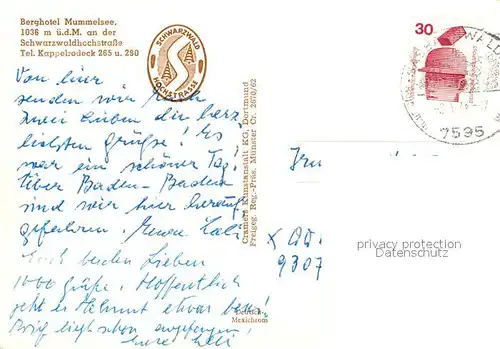 Berghotel Mummelsee,
1036 m ü.d.M. an der
Schwarzwaldhochstraße
Tel. Kappelrodeck 265 u. 280
SCHWARZWALD
HOCHSTRASSE
30
7595
Von hier
senden wir Euch
zwei Lieben die herz
lichsten Grüße! Es
war ein schöner Tag!
Über Baden-Baden
sind wir hier herauf
gefahren. Eure Lilli
Euch beiden Lieben
1000 Grüße. Hoffentlich
geht es Helmut etwas
Brief liegt schon
Eure Lilli
Cramers Kunstanstalt KG, Dortmund
Freigeg. Reg.-Präs. Münster Cr. 2670/62
9307
privacy protection
Datenschutz
Mexichrom